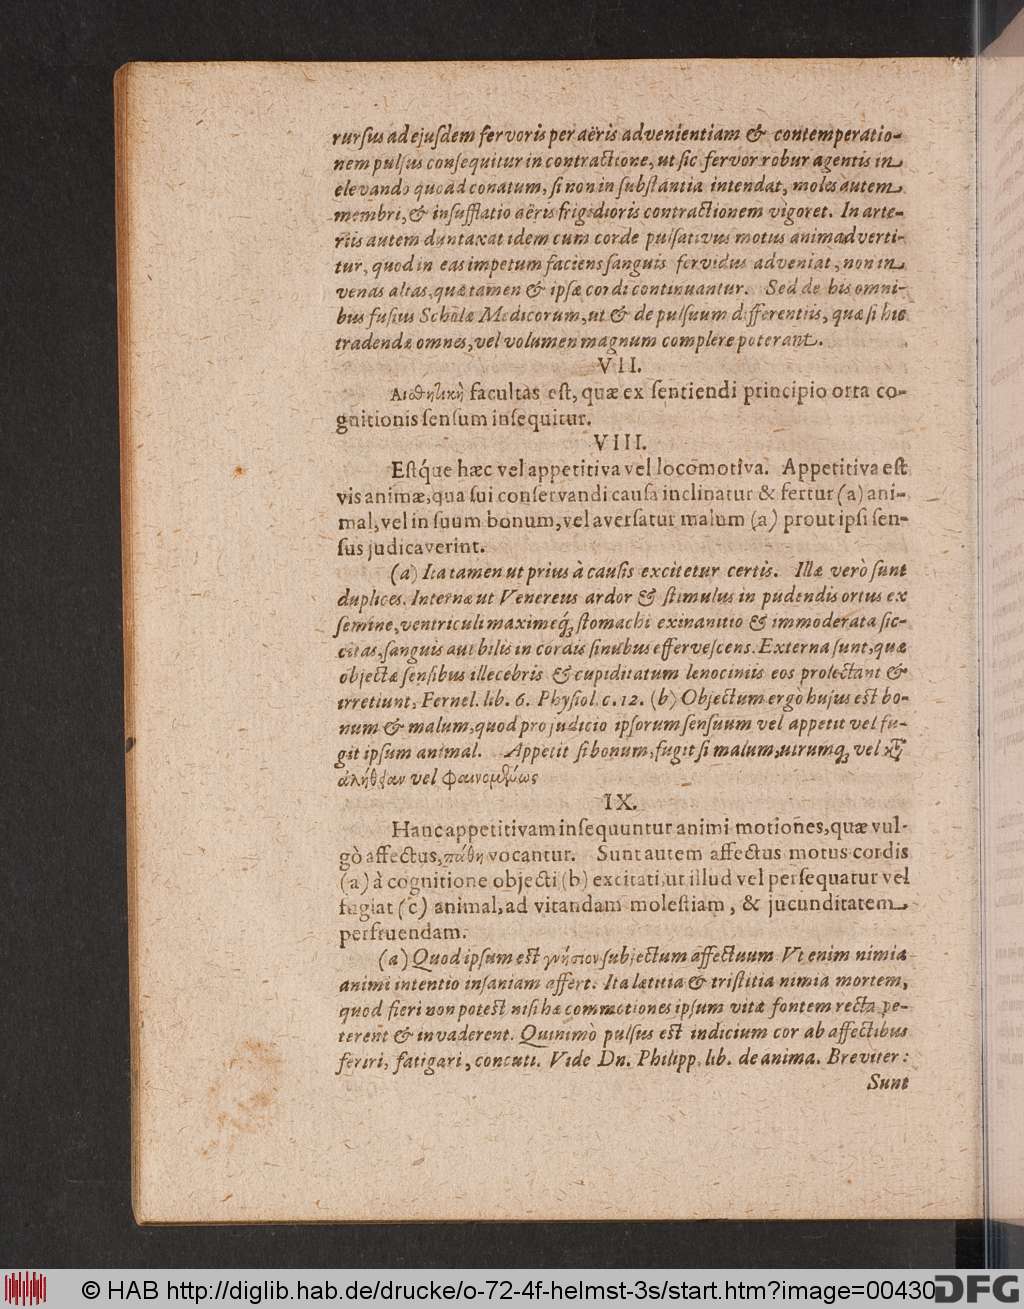 rursus ad ejusdem fervoris per aëris advenientiam & contemperatio-
nem pulsus consequitur in contractione, ut sic fervor robur agentis in
elevando quoad conatum, si non in substantia intendat, moles autem
membri, & insufflatio aëris frigidioris contractionem vigoret. In arte-
riis autem duntaxat idem cum corde pulsativus motus animadverti-
tur, quod in eas impetum faciens sanguis fervidus adveniat, non in
venas altas, quæ tamen & ipsæ cordi continuantur. Sed de his omni-
bus fusius Scholæ Medicorum, ut & de pulsuum differentiis, quæ si hic
tradendæ omnes, vel volumen magnum complere poterant.
VII.
Αισθητικὴ facultas est, quæ ex sentiendi principio orta co-
gnitionis sensum insequitur.
VIII.
Estq́ue hæc vel appetitiva vel locomotiva. Appetitiva est
vis animæ, qua sui conservandi causa inclinatur & fertur (a) ani-
mal, vel in suum bonum, vel aversatur malum (a) prout ipsi sen-
sus judicaverint.
(a) Ita tamen ut prius à causis excitetur certis. Illæ verò sunt
duplices. Internæ ut Venereus ardor & stimulus in pudendis ortus ex
semine, ventriculi maximeq́; stomachi exinanitio & immoderata sic-
citas, sanguis aut bilis in cordis sinubus effervescens. Externa sunt, quæ
objectæ sensibus illecebris & cupiditatum lenociniis eos prolectant &
irretiunt, Fernel. lib. 6. Physiol. c. 12. (b) Objectum ergò hujus est bo-
num & malum, quod pro judicio ipsorum sensuum vel appetit vel fu-
git ipsum animal. Appetit si bonum, fugit si malum, utrumq; vel κτ̃
ἀλήθειαν vel φαινομδύως
IX.
Hanc appetitivam insequuntur animi motiones, quæ vul-
gò affectus, πάθη vocantur. Sunt autem affectus motus cordis
(a) à cognitione objecti (b) excitati, ut illud vel persequatur vel
fugiat (c) animal, ad vitandam molestiam, & jucunditatem
perfruendam.
(a) Quod ipsum est γνήσιον subjectum affectuum Ut enim nimia
animi intentio insaniam affert. Ita lætitia & tristitia nimia mortem,
quod fieri non potest nisi hæ commotiones ipsum vitæ fontem recta pe-
terent & invaderent. Quinimò pulsus est indicium cor ab affectibus
feriri, fatigari, concuti. Vide Dn. Philipp. lib. de anima. Breviter:
Sunt
© HAB http://diglib.hab.de/drucke/o-72-4f-helmst-3s/start.htm?image=00430
DFG